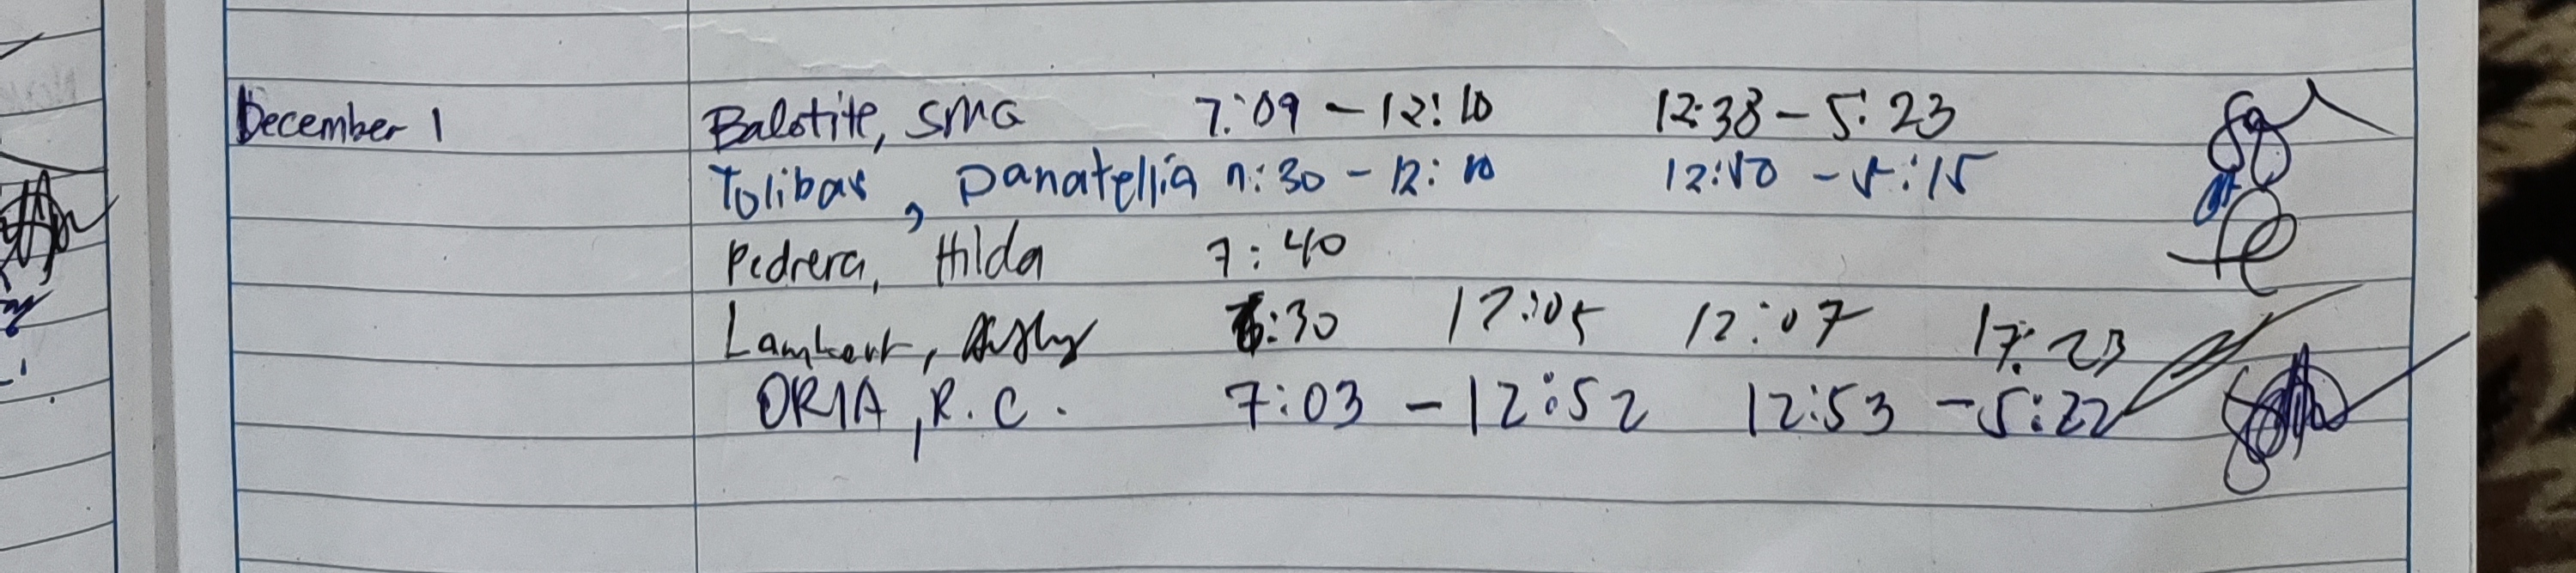 December 1 Balotite, SMG 7:09 - 12:10 12:38 - 5:23
Tolibas, Panatellia 7:30 - 12:10 12:50 - 5:15
Pedrera, Hilda 7:40
Lambert, :30 12:05 12:07 17:23
ORIA, R.C. 7:03 - 12:52 12:53 - 5:22